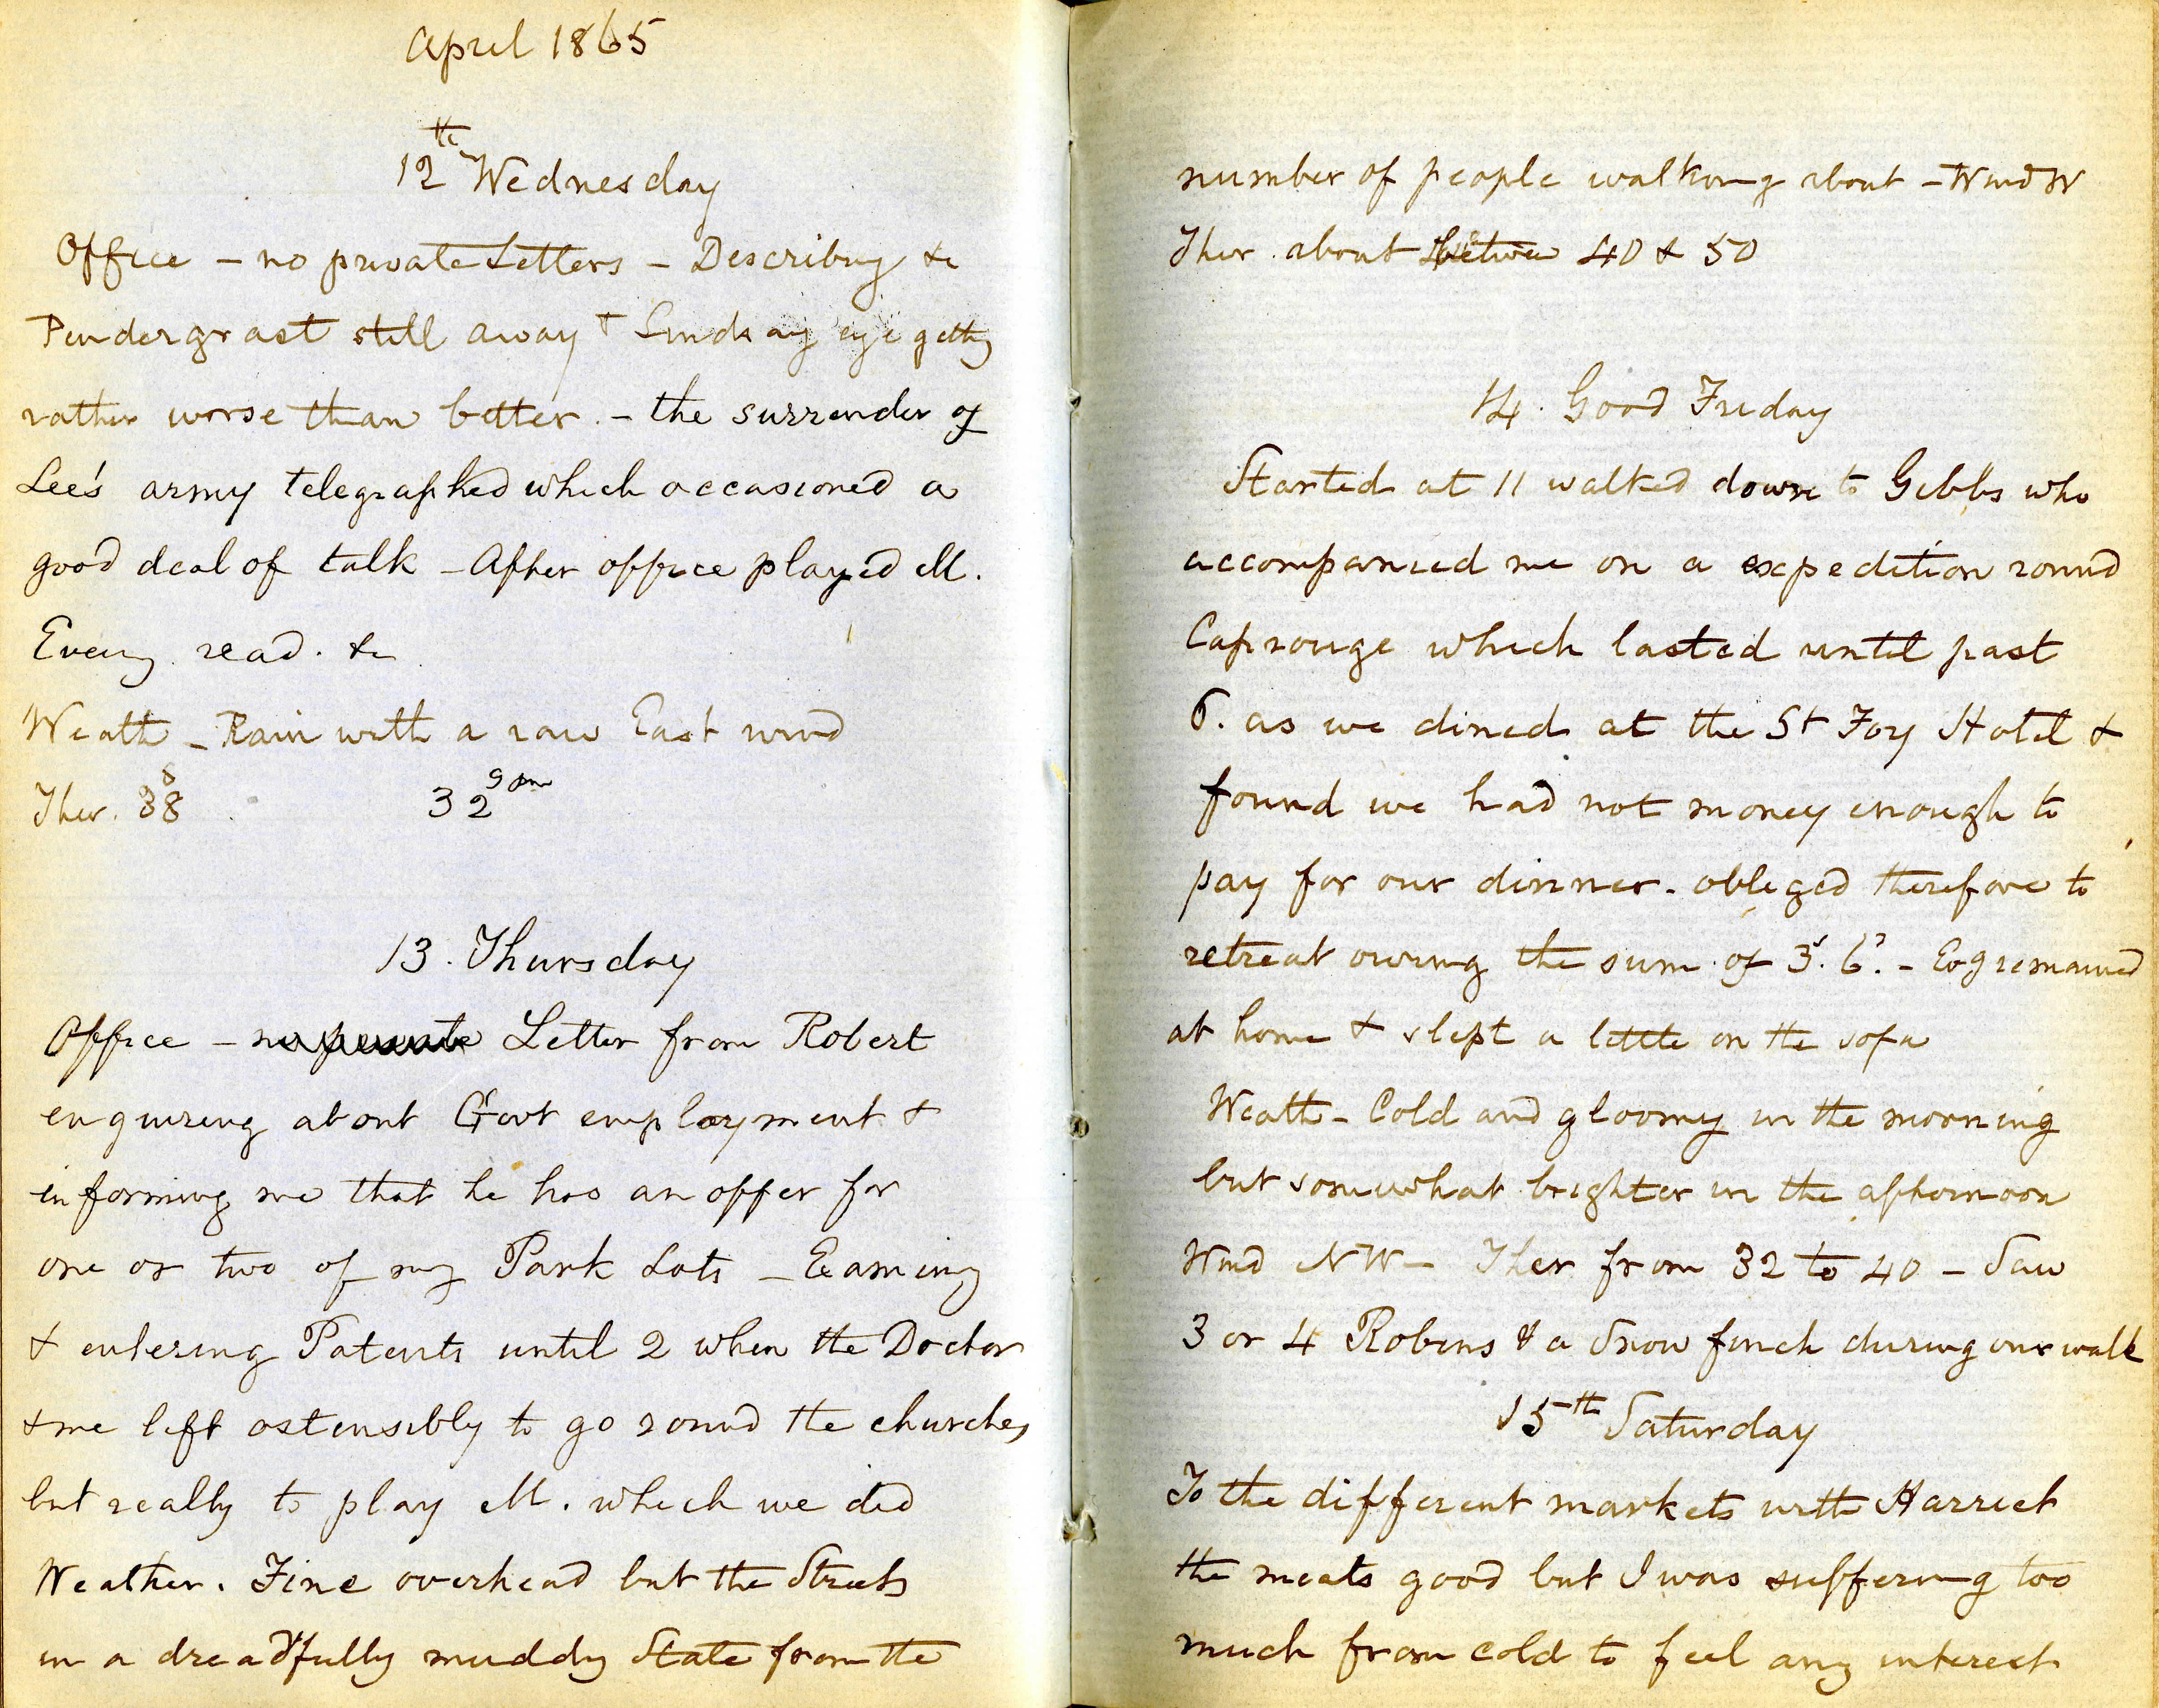 April 1865
12th Wednesday
Office - no private Letters - Describing &c
Pendergrast still away & Lindsay eye getting
rather worse than better. - the surrender of
Lee's army telegraphed which occasioned a
good deal of talk - After office played M.
Eveng. read. &c
Weath - Rain with a raw East wind
Ther. 38 8 32 9 pm
13. Thursday
Office - no private Letter from Robert
enquiring about Govt employment &
informing me that he has an offer for
one or two of my Park Lots - Examing
& entering Patents until 2 when the Doctor
& me left ostensibly to go round the churches
but really to play M. which we did
Weather. Fine overhead but the Streets
in a dreadfully muddy State from the
number of people walking about - Wind W
Ther. about betwee 40 & 50
14. Good Friday
Started at 11 walked down to Gibbs who
accompanied me on a expedition round
Caprouge which lasted until past
6. as we dined at the St Foy Hotel &
found we had not money enough to
pay for our dinner. obliged therefore to
retreat owing the sum of 3s. 6d. - Evg remained
at home & slept a little on the sofa
Weath - Cold and gloomy in the morning
but somewhat brighter in the afternoon
Wind NW - Ther from 32 to 40 - Saw
3 or 4 Robins & a Snow finch during our walk
15th Saturday
To the different markets with Harriet
the meats good but I was suffering too
much from cold to feel any interest